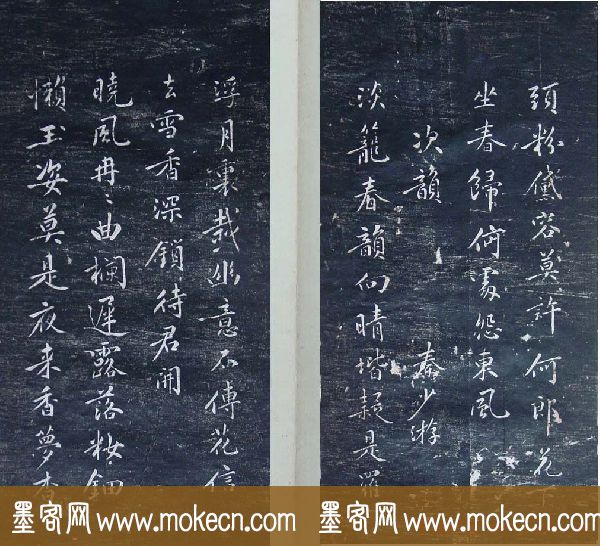 頭粉黛容莫許何郎花下
坐春歸何處怨東風
次韻 秦少游
淡籠春韻向晴堦疑是羅
浮月裏栽幽意不傳花信
去雪香深鎖待君開
曉風冉〻曲欄遲露落妝鈿
懶玉姿莫是夜来香夢
墨客网 www.mokecn.com
墨客网 www.mokecn.com